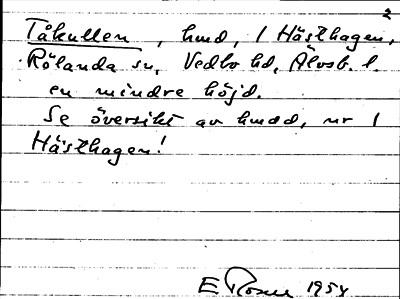 2
Tåkullen, hmd, 1 Hästhagen,
Rölanda sn, Vedbo hd, Älvsb. l.
en mindre höjd.
Se översikt av hmdd, nr 1
Hästhagen!
E Rosen 1954